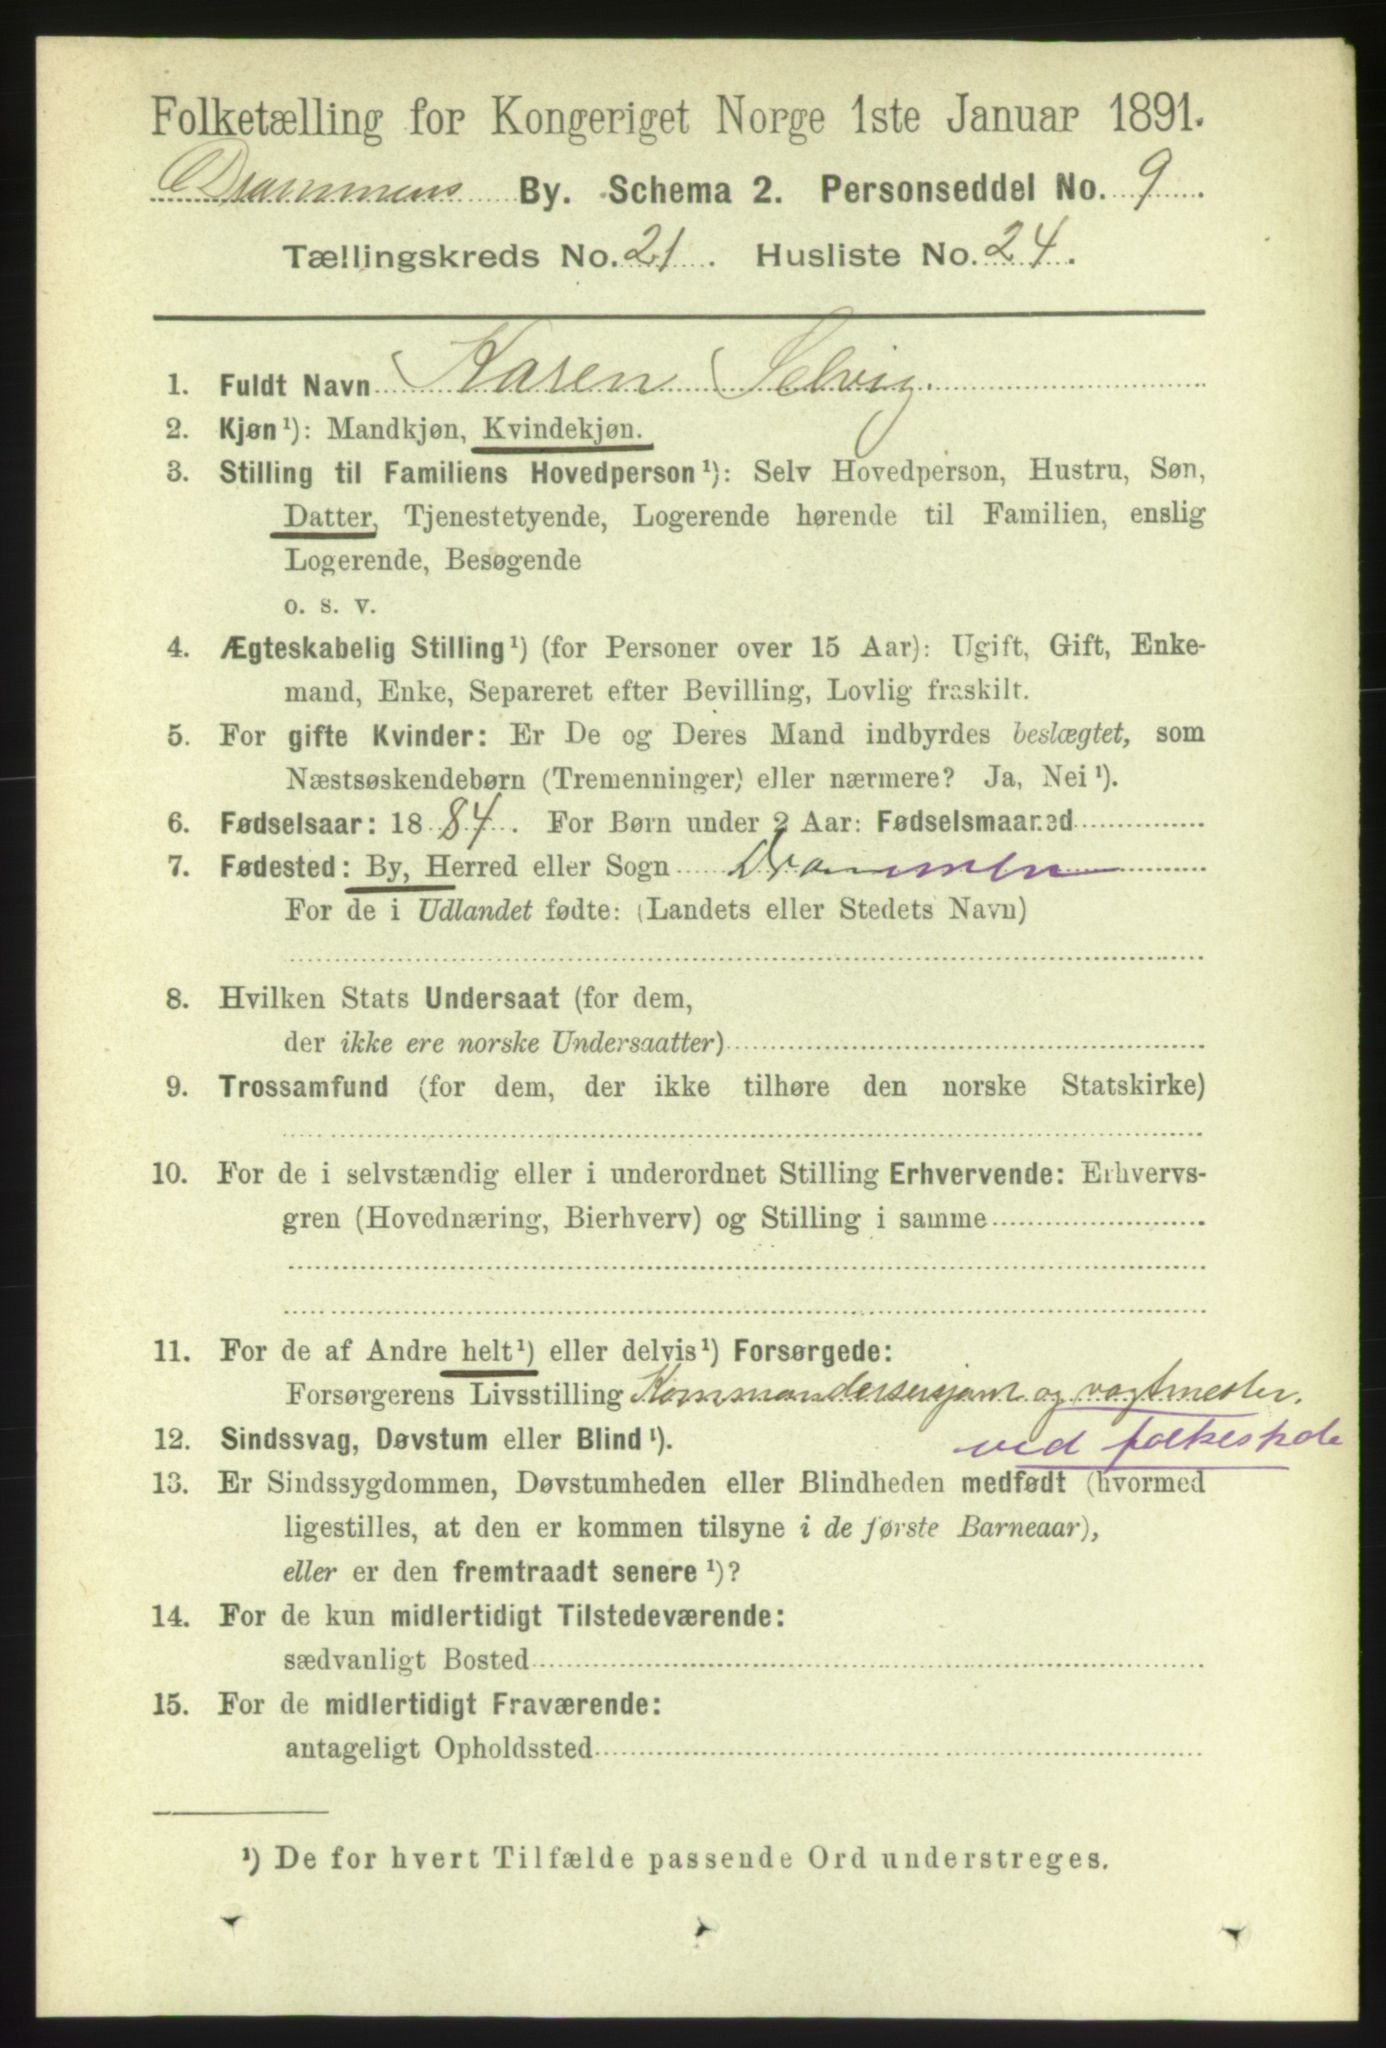 Folketælling for Kongeriget Norge 1ste Januar 1891.
Drammens By. Schema 2. Personseddel No. 9
Tællingskreds No. 21. Husliste No. 24.
1. Fuldt Navn Karen Selvig.
2. Kjøn¹): Mandkjøn, Kvindekjøn.
3. Stilling til Familiens Hovedperson¹): Selv Hovedperson, Hustru, Søn,
Datter, Tjenestetyende, Logerende hørende til Familien, enslig
Logerende, Besøgende
o. s. v.
4. Ægteskabelig Stilling¹) (for Personer over 15 Aar): Ugift, Gift, Enke-
mand, Enke, Separeret efter Bevilling, Lovlig fraskilt.
5. For gifte Kvinder: Er De og Deres Mand indbyrdes beslægtet, som
Næstsøskendebørn (Tremenninger) eller nærmere? Ja, Nei¹).
6. Fødselsaar: 1884. For Børn under 2 Aar: Fødselsmaaned
7. Fødested: By, Herred eller Sogn Drammen
For de i Udlandet fødte: (Landets eller Stedets Navn)
8. Hvilken Stats Undersaat (for dem,
der ikke ere norske Undersaatter)
9. Trossamfund (for dem, der ikke tilhøre den norske Statskirke)
10. For de i selvstændig eller i underordnet Stilling Erhvervende: Erhvervs-
gren (Hovednæring, Bierhverv) og Stilling i samme
11. For de af Andre helt¹) eller delvis¹) Forsørgede:
Forsørgerens Livsstilling Kommandersersjant og vagtmester.
12. Sindssvag, Døvstum eller Blind¹). ved folkeskole
13. Er Sindssygdommen, Døvstumheden eller Blindheden medfødt (hvormed
ligestilles, at den er kommen tilsyne i de første Barneaar),
eller er den fremtraadt senere¹)?
14. For de kun midlertidigt Tilstedeværende:
sædvanligt Bosted
15. For de midlertidigt Fraværende:
antageligt Opholdssted
¹) De for hvert Tilfælde passende Ord understreges.